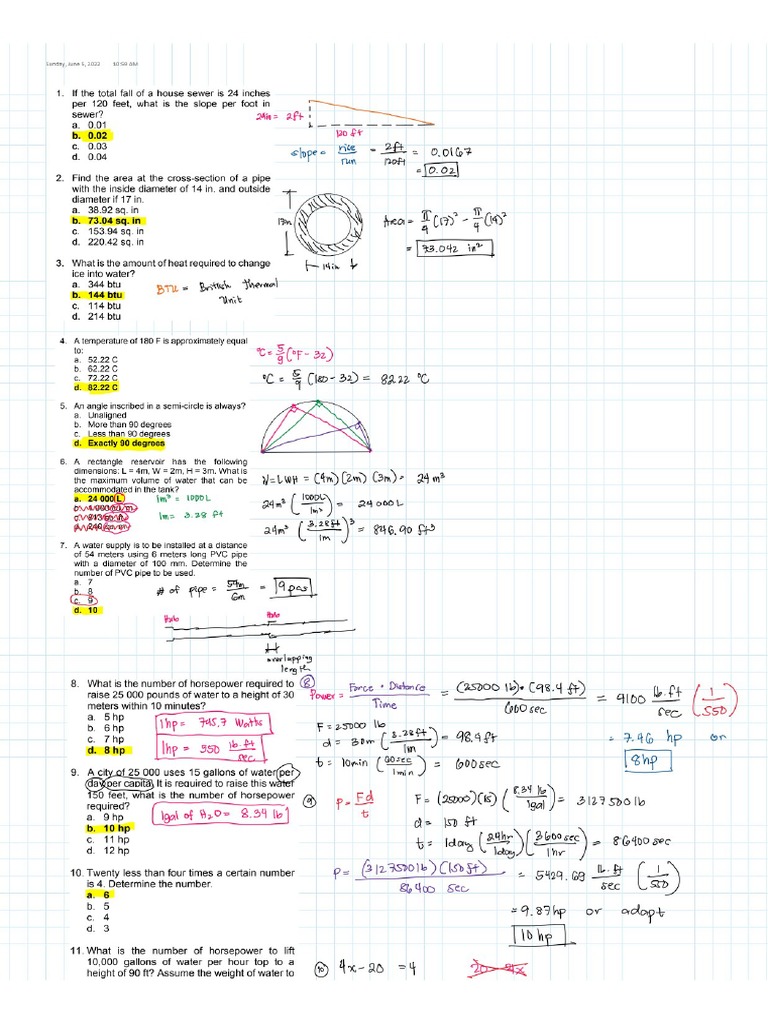 Sunday, June 5, 2022 10:59 AM
1. If the total fall of a house sewer is 24 inches
per 120 feet, what is the slope per foot in
sewer?
a. 0.01
b. 0.02
c. 0.03
d. 0.04
24in = 2ft
120 ft
slope = rise/run = 2ft/120ft = 0.0167
= 0.02
2. Find the area at the cross-section of a pipe
with the inside diameter of 14 in. and outside
diameter if 17 in.
a. 38.92 sq. in
b. 73.04 sq. in
c. 153.94 sq. in
d. 220.42 sq. in
17in
14in
Area = π/4 (17)² - π/4 (14)²
= 73.042 in²
3. What is the amount of heat required to change
ice into water?
a. 344 btu
b. 144 btu
c. 114 btu
d. 214 btu
BTU = British Thermal
Unit
4. A temperature of 180 F is approximately equal
to:
a. 52.22 C
b. 62.22 C
c. 72.22 C
d. 82.22 C
°C = 5/9 (°F - 32)
°C = 5/9 (180 - 32) = 82.22 °C
5. An angle inscribed in a semi-circle is always?
a. Unaligned
b. More than 90 degrees
c. Less than 90 degrees
d. Exactly 90 degrees
6. A rectangle reservoir has the following
dimensions: L = 4m, W = 2m, H = 3m. What is
the maximum volume of water that can be
accommodated in the tank?
a. 24 000 L
1m³ = 1000L
1m = 3.28 ft
V = LWH = (4m)(2m)(3m) = 24 m³
24m³ (1000L/1m³) = 24 000 L
24m³ (3.28ft/1m)³ = 846.90 ft³
7. A water supply is to be installed at a distance
of 54 meters using 6 meters long PVC pipe
with a diameter of 100 mm. Determine the
number of PVC pipe to be used.
a. 7
b. 8
c. 9
d. 10
# of pipe = 54m/6m = 9 pcs
overlapping
length
8. What is the number of horsepower required to
raise 25 000 pounds of water to a height of 30
meters within 10 minutes?
a. 5 hp
b. 6 hp
c. 7 hp
d. 8 hp
1hp = 745.7 Watts
1hp = 550 lb.ft/sec
8 Power = Force · Distance/Time = (25000 lb) · (98.4 ft)/600 sec = 9100 lb.ft/sec (1/550)
F = 25000 lb
d = 30m (3.28ft/1m) = 98.4 ft
t = 10min (60sec/1min) = 600sec
= 7.46 hp or
8hp
9. A city of 25 000 uses 15 gallons of water per
day per capita. It is required to raise this water
150 feet, what is the number of horsepower
required?
a. 9 hp
b. 10 hp
c. 11 hp
d. 12 hp
1gal of H₂O = 8.34 lb
9 P = Fd/t
F = (25000)(15)(8.34 lb/1gal) = 3127500 lb
d = 150 ft
t = 1day (24hr/1day)(3600sec/1hr) = 86400 sec
P = (3127500 lb)(150 ft)/86400 sec = 5429.69 lb.ft/sec (1/550)
= 9.87hp or adapt
10 hp
10. Twenty less than four times a certain number
is 4. Determine the number.
a. 6
b. 5
c. 4
d. 3
11. What is the number of horsepower to lift
10,000 gallons of water per hour top to a
height of 90 ft? Assume the weight of water to
10 4x - 20 = 4
20 - 4x